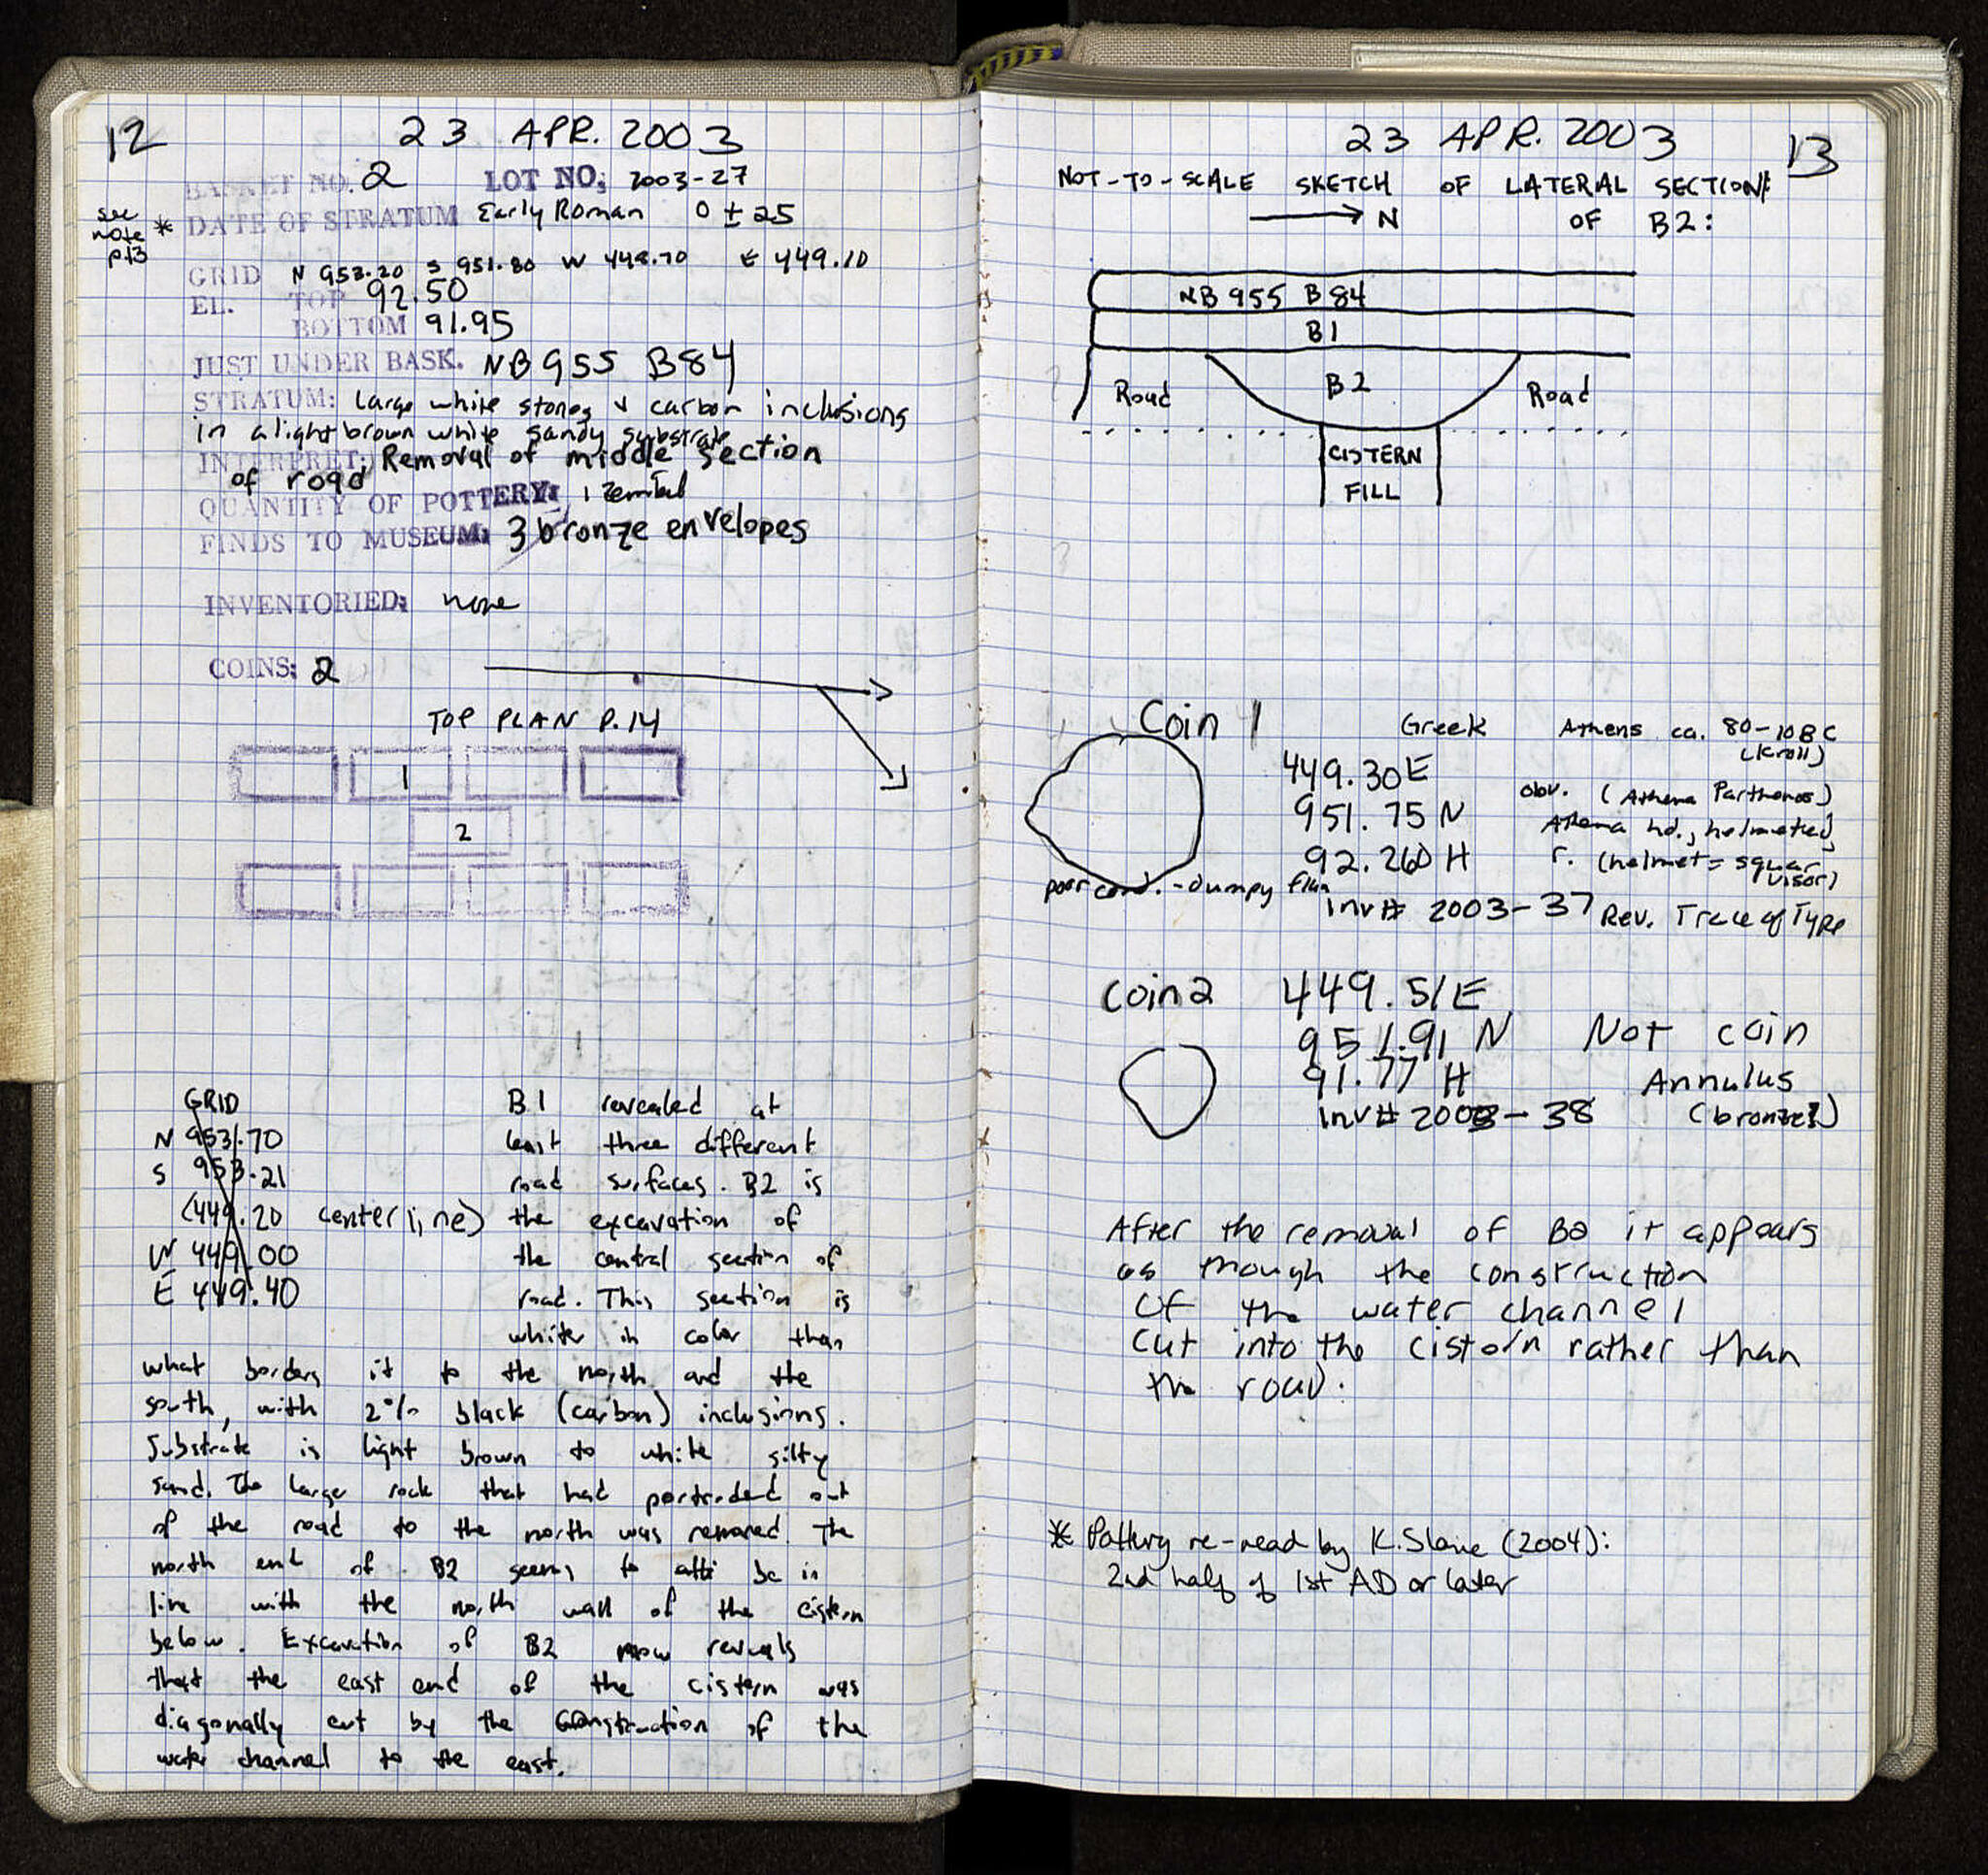 12
23 APR. 2003
BASKET NO. 2 LOT NO: 2003-27
see note p.13 * DATE OF STRATUM Early Roman 0 ± 25
GRID N 953.20 S 951.80 W 448.70 E 449.10
EL. TOP 92.50
BOTTOM 91.95
JUST UNDER BASK. NB 955 B84
STRATUM: Large white stones & carbon inclusions
in a light brown white sandy substrate
INTERPRET: Removal of middle section
of road
QUANTITY OF POTTERY: 1 zembil
FINDS TO MUSEUM: 3 bronze envelopes
INVENTORIED: none
COINS: 2
TOP PLAN P.14
1
2
GRID
N 953.70
S 953.21
(449.20 centerline)
W 449.00
E 449.40
B1 revealed at
least three different
road surfaces. B2 is
the excavation of
the central section of
road. This section is
whiter in color than
what borders it to the north and the
south, with 2% black (carbon) inclusions.
Substrate is light brown to white silty
sand. The large rock that had portruded out
of the road to the north was removed. The
north end of B2 seems to be in
line with the north wall of the cistern
below. Excavation of B2 now reveals
that the east end of the cistern was
diagonally cut by the construction of the
water channel to the east.
23 APR. 2003
13
NOT-TO-SCALE SKETCH OF LATERAL SECTION
N OF B2:
NB 955 B84
B1
Road B2 Road
CISTERN
FILL
Coin 1 Greek Athens ca. 80-10 BC
(Kroll)
449.30 E
951.75 N
92.260 H
obv. (Athena Parthenos)
Athena hd., helmeted,
r. (helmet = squar
visor)
poor cond. - dumpy flan
Inv# 2003-37 Rev. Trace of Type
Coin 2 449.51 E
951.91 N Not coin
91.77 H Annulus
Inv# 2003-38 (bronze?)
After the removal of B2 it appears
as though the construction
of the water channel
cut into the cistern rather than
the road.
* Pottery re-read by K. Slane (2004):
2nd half of 1st AD or later